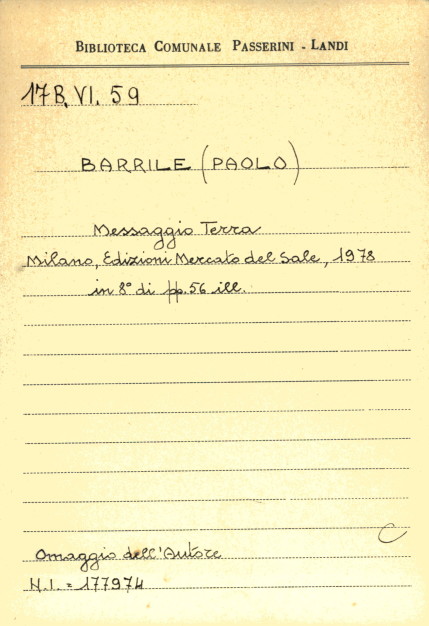 BIBLIOTECA COMUNALE PASSERINI - LANDI
17B.VI. 59
BARRILE (PAOLO)
Messaggio Terra
Milano, Edizioni Mercato del Sale, 1978
in 8° di pp. 56 ill.
C
Omaggio dell'Autore
N.I. = 177974